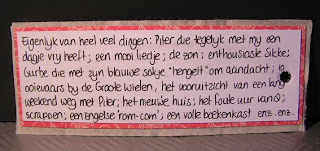 Eigenlijk van heel veel dingen: Piter die tegelijk met mij een
dagje vrij heeft; een mooi liedje; de zon; enthousiaste Sikke;
Gurbe die met zijn blauwe sokje "hengelt" om aandacht; 10
ooievaars bij de Groote Wielen, het vooruitzicht van een lang
weekend weg met Piter; het nieuwe huis; het foute uur van Q;
scrappen; een Engelse 'rom-com'; een volle boekenkast enz. enz.